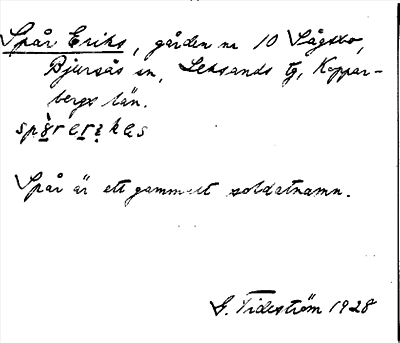 Spår Eriks, gården nr 10 Sågsbo,
Bjursås sn, Leksands tg, Koppar-
bergs län.
Spår är ett gammalt soldatnamn.
G. Tideström 1928